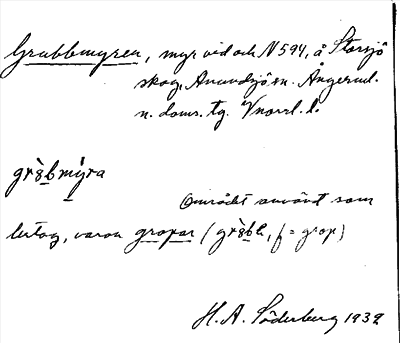 Grubbmyren, myr vid och N 594, å Storsjö
skog, Anundsjö sn. Ångerml.
n. doms. tg. Vnorrl. l.
området använt som
lertag, varav gropar (
, f = grop)
H. A. Söderberg 1932